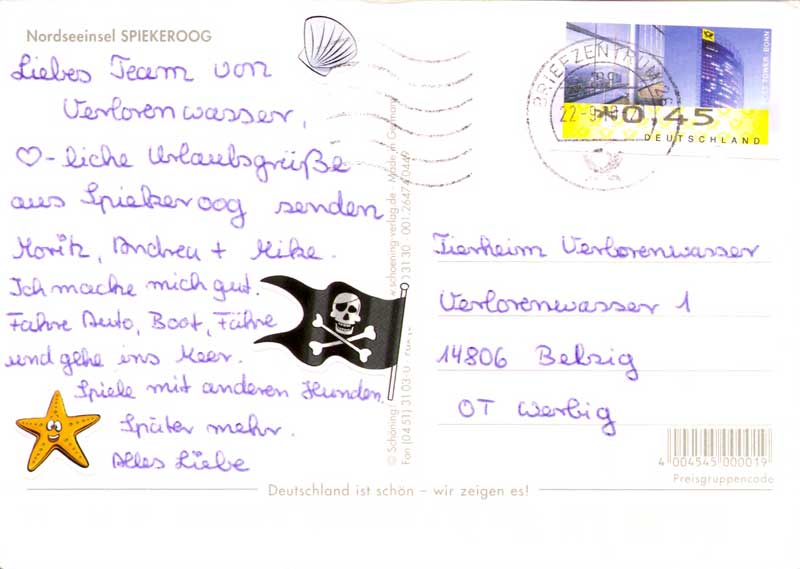 Nordseeinsel SPIEKEROOG
Liebes Team von
Verlorenwasser,
♡-liche Urlaubsgrüße
aus Spiekeroog senden
Moritz, Andrea + Mike.
Ich mache mich gut.
Fahre Auto, Boot, Fähre
und gehe ins Meer.
Spiele mit anderen Hunden.
Später mehr.
Alles Liebe
BRIEFZENTRUM
22-9
0,45
DEUTSCHLAND
TOWER BONN
Tierheim Verlorenwasser
Verlorenwasser 1
14806 Belzig
OT Werbig
© Schöning
Fon (04 51) 3 10 3-0
schoening-verlag.de · Made in Germany
4 004545 000019
Preisgruppencode
Deutschland ist schön – wir zeigen es!